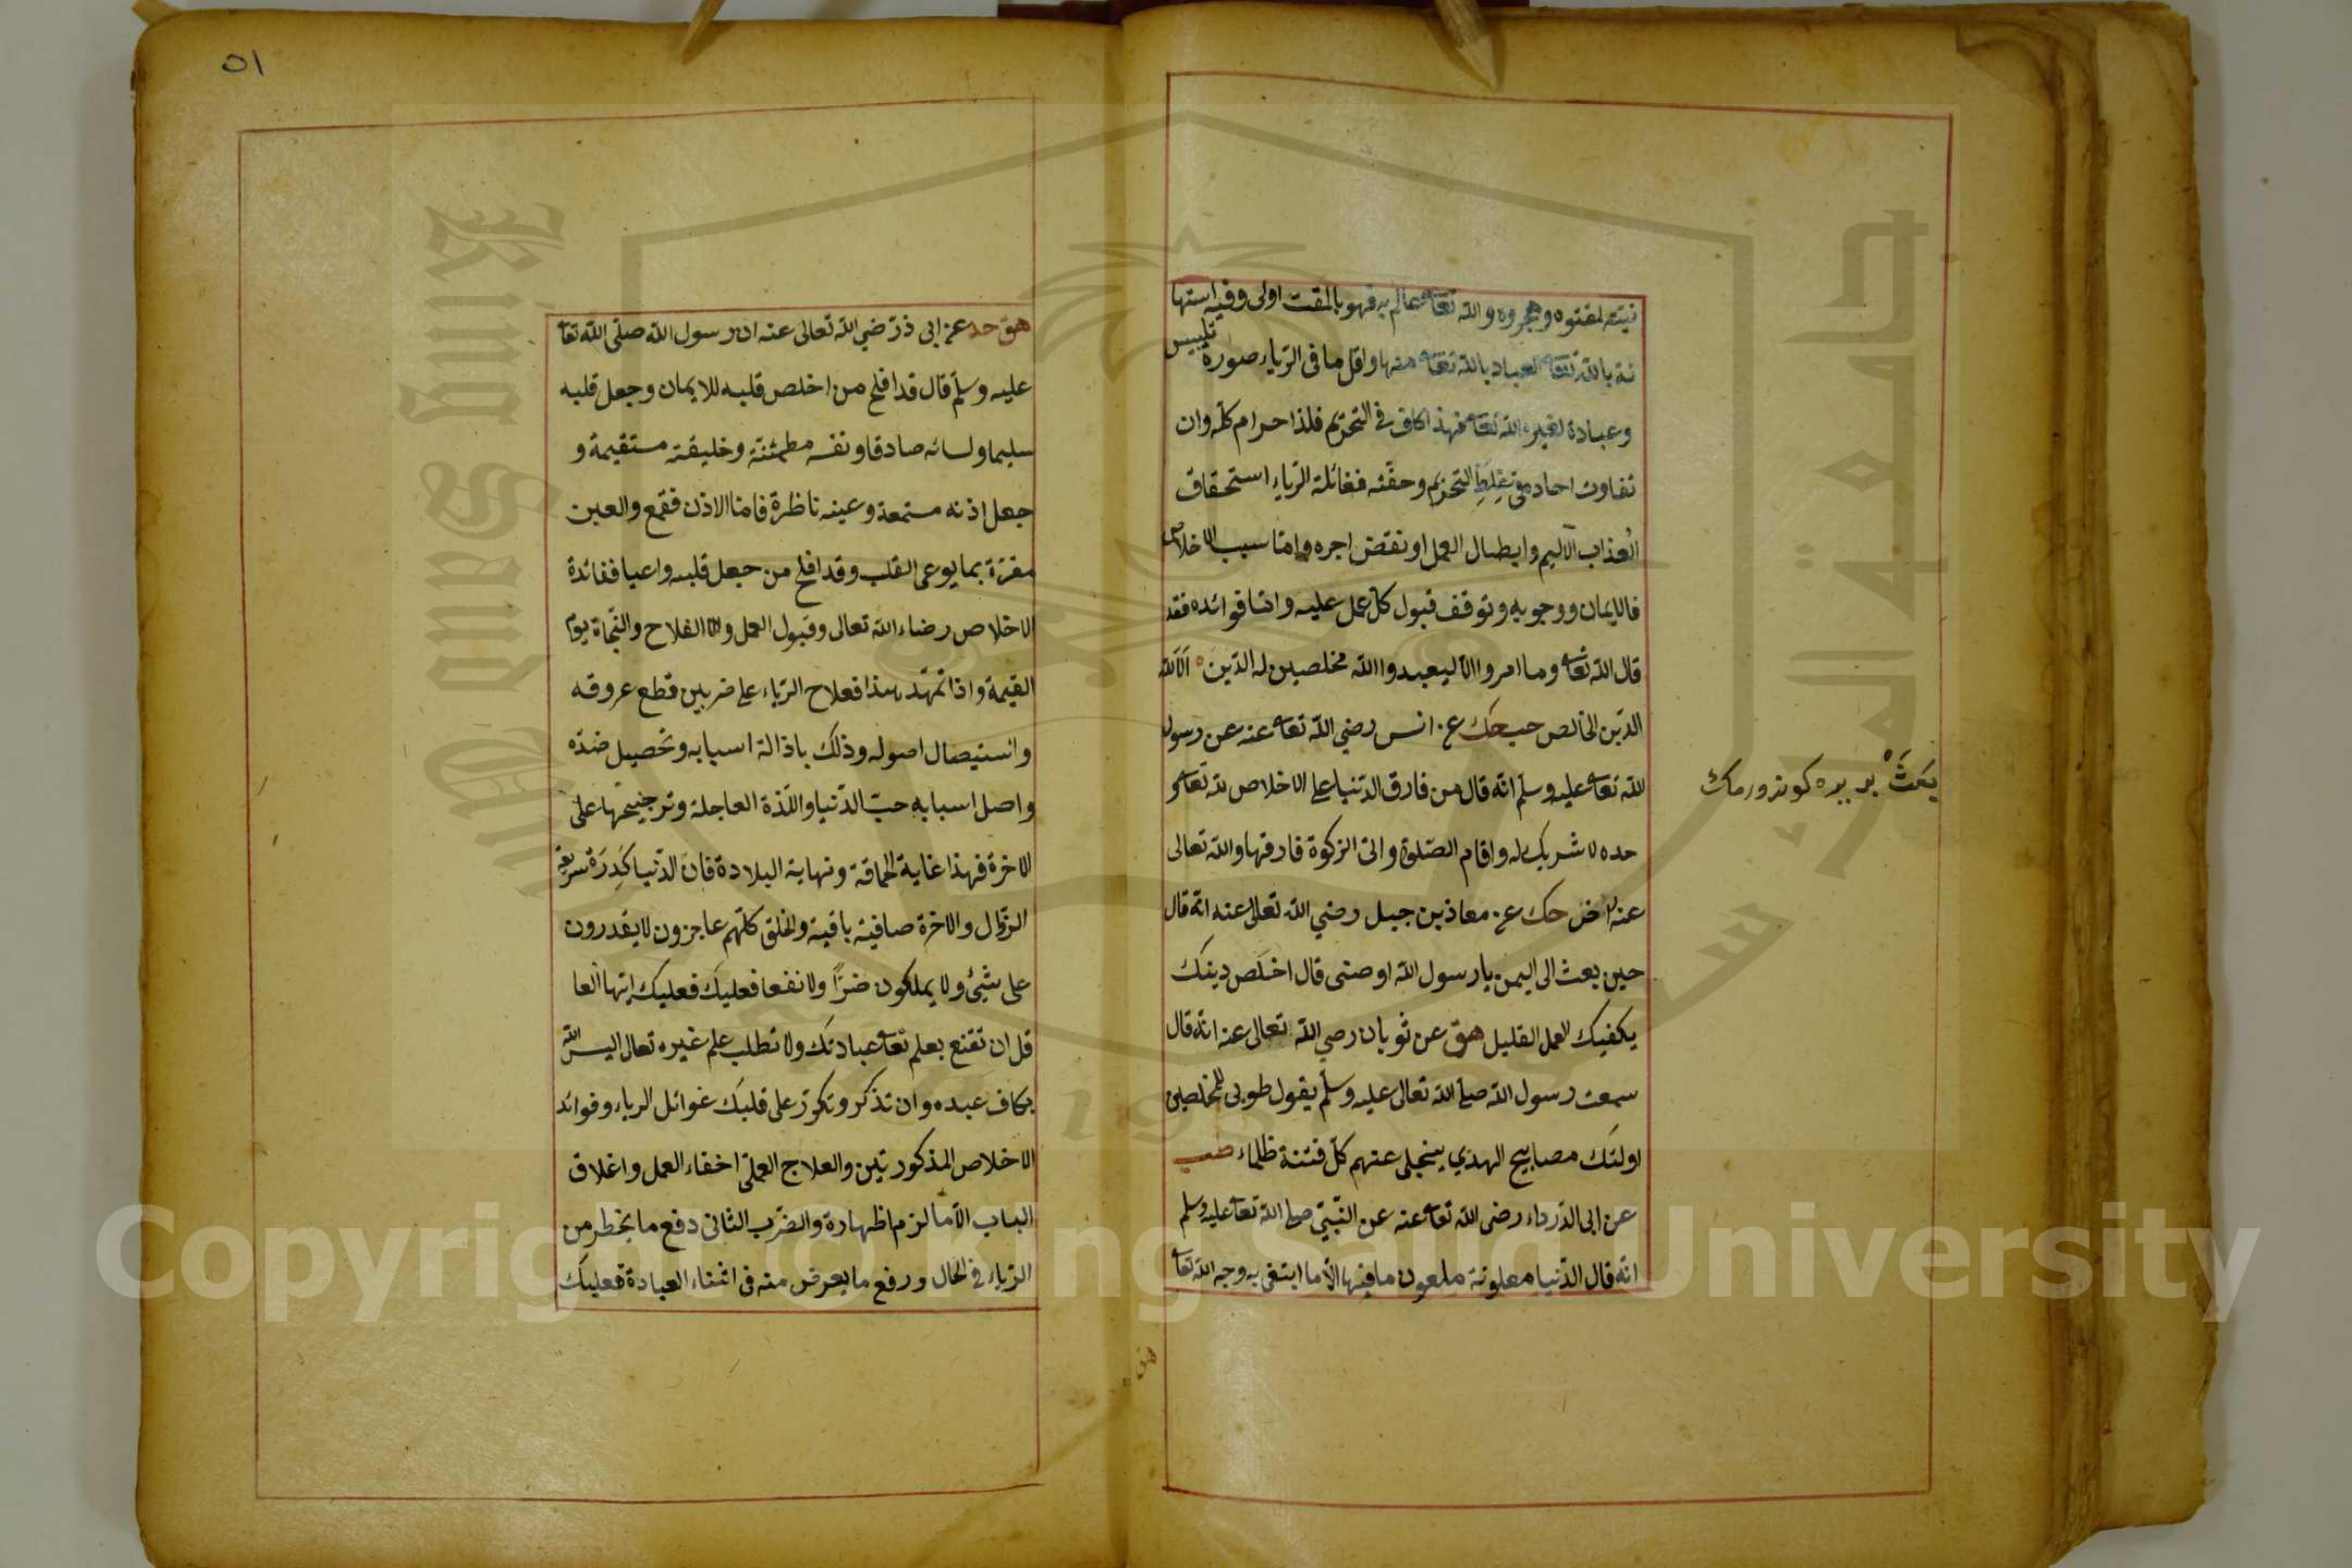 نيته لمقتوه وهجروه والله تعا عالم به فهو بالمقت اولى وفيه استها
نة بالله تعا العياد بالله تعا منها واقل ما فى الرياء صورة تلبيس
وعبادة لغير الله تعا فهذا كاف فى التحريم فلذا حرام كله وان
تفاوت احاد فى تغلظ التحريم وخفته فغائلة الرياء استحقاق
العذاب الاليم وابطال العمل او نقض اجره واما سبب الاخلاص
فالايمان ووجوبه وتوقف قبول كل عمل عليه واما فوائده فقد
قال الله تعا وما امروا الا ليعبدوا الله مخلصين له الدين الا لله
الدين الخالص حب حك عن انس رضي الله تعا عنه عن رسول
الله تعا عليه وسلم انه قال من فارق الدنيا على الاخلاص لله تعا و
حده لا شريك له واقام الصلوة واتى الزكوة فارقها والله تعالى
عنه راض حك عن معاذ بن جبل رضي الله تعالى عنه انه قال
حين بعث الى اليمن يا رسول الله اوصنى قال اخلص دينك
يكفيك العمل القليل هق عن ثوبان رضي الله تعالى عنه انه قال
سمعت رسول الله صلى الله تعالى عليه وسلم يقول طوبى للمخلصين
اولئك مصابيح الهدي ينجلى عنهم كل فتنة ظلماء طب
عن ابى الدرداء رضى الله تعا عنه عن النبي صلى الله تعا عليه وسلم
انه قال الدنيا معلونة ملعون ما فيها الا ما ابتغى به وجه الله تعا
بعث بر يره كوندرمك
٥١
هق حد عن ابى ذر رضي الله تعالى عنه ان رسول الله صلى الله تعا
عليه وسلم قال قد افلح من اخلص قلبه للايمان وجعل قلبه
سليما ولسانه صادقا ونفسه مطمئنة وخليقته مستقيمة و
جعل اذنه مستمعة وعينه ناظرة فاما الاذن فقمع والعين
مقرة بما يوعى القلب وقد افلح من جعل قلبه واعيا ففائدة
الاخلاص رضاء الله تعالى وقبول العمل والفلاح والنجاة يوم
القيمة واذا تمهد هذا فعلاج الرياء على ضربين قطع عروقه
واستيصال اصوله وذلك باذالة اسبابه وتحصيل ضده
واصل اسبابه حب الدنيا واللذة العاجلة وترجيحها على
الاخرة فهذا غاية الحماقة ونهاية البلادة فان الدنيا كدرة سريعة
الزوال والاخرة صافية باقية والخلق كلهم عاجزون لا يقدرون
على شيئ ولا يملكون ضرًا ولا نفعا فعليك فعليك ايها العا
قل ان تقنع بعلم تعا عبادتك ولا تطلب علم غيره تعالى اليس الله
بكاف عبده وان تذكر وتكرر على قلبك غوائل الرياء وفوائد
الاخلاص المذكورتين والعلاج العملى اخفاء العمل واغلاق
الباب الا ما لزم اظهاره والضرب الثانى دفع ما يخطر من
الرياء فى الحال ورفع ما يعرض منه فى اثناء العبادة فعليك
جامعة الملك سعود
King Saud University
Copyright © King Saud University